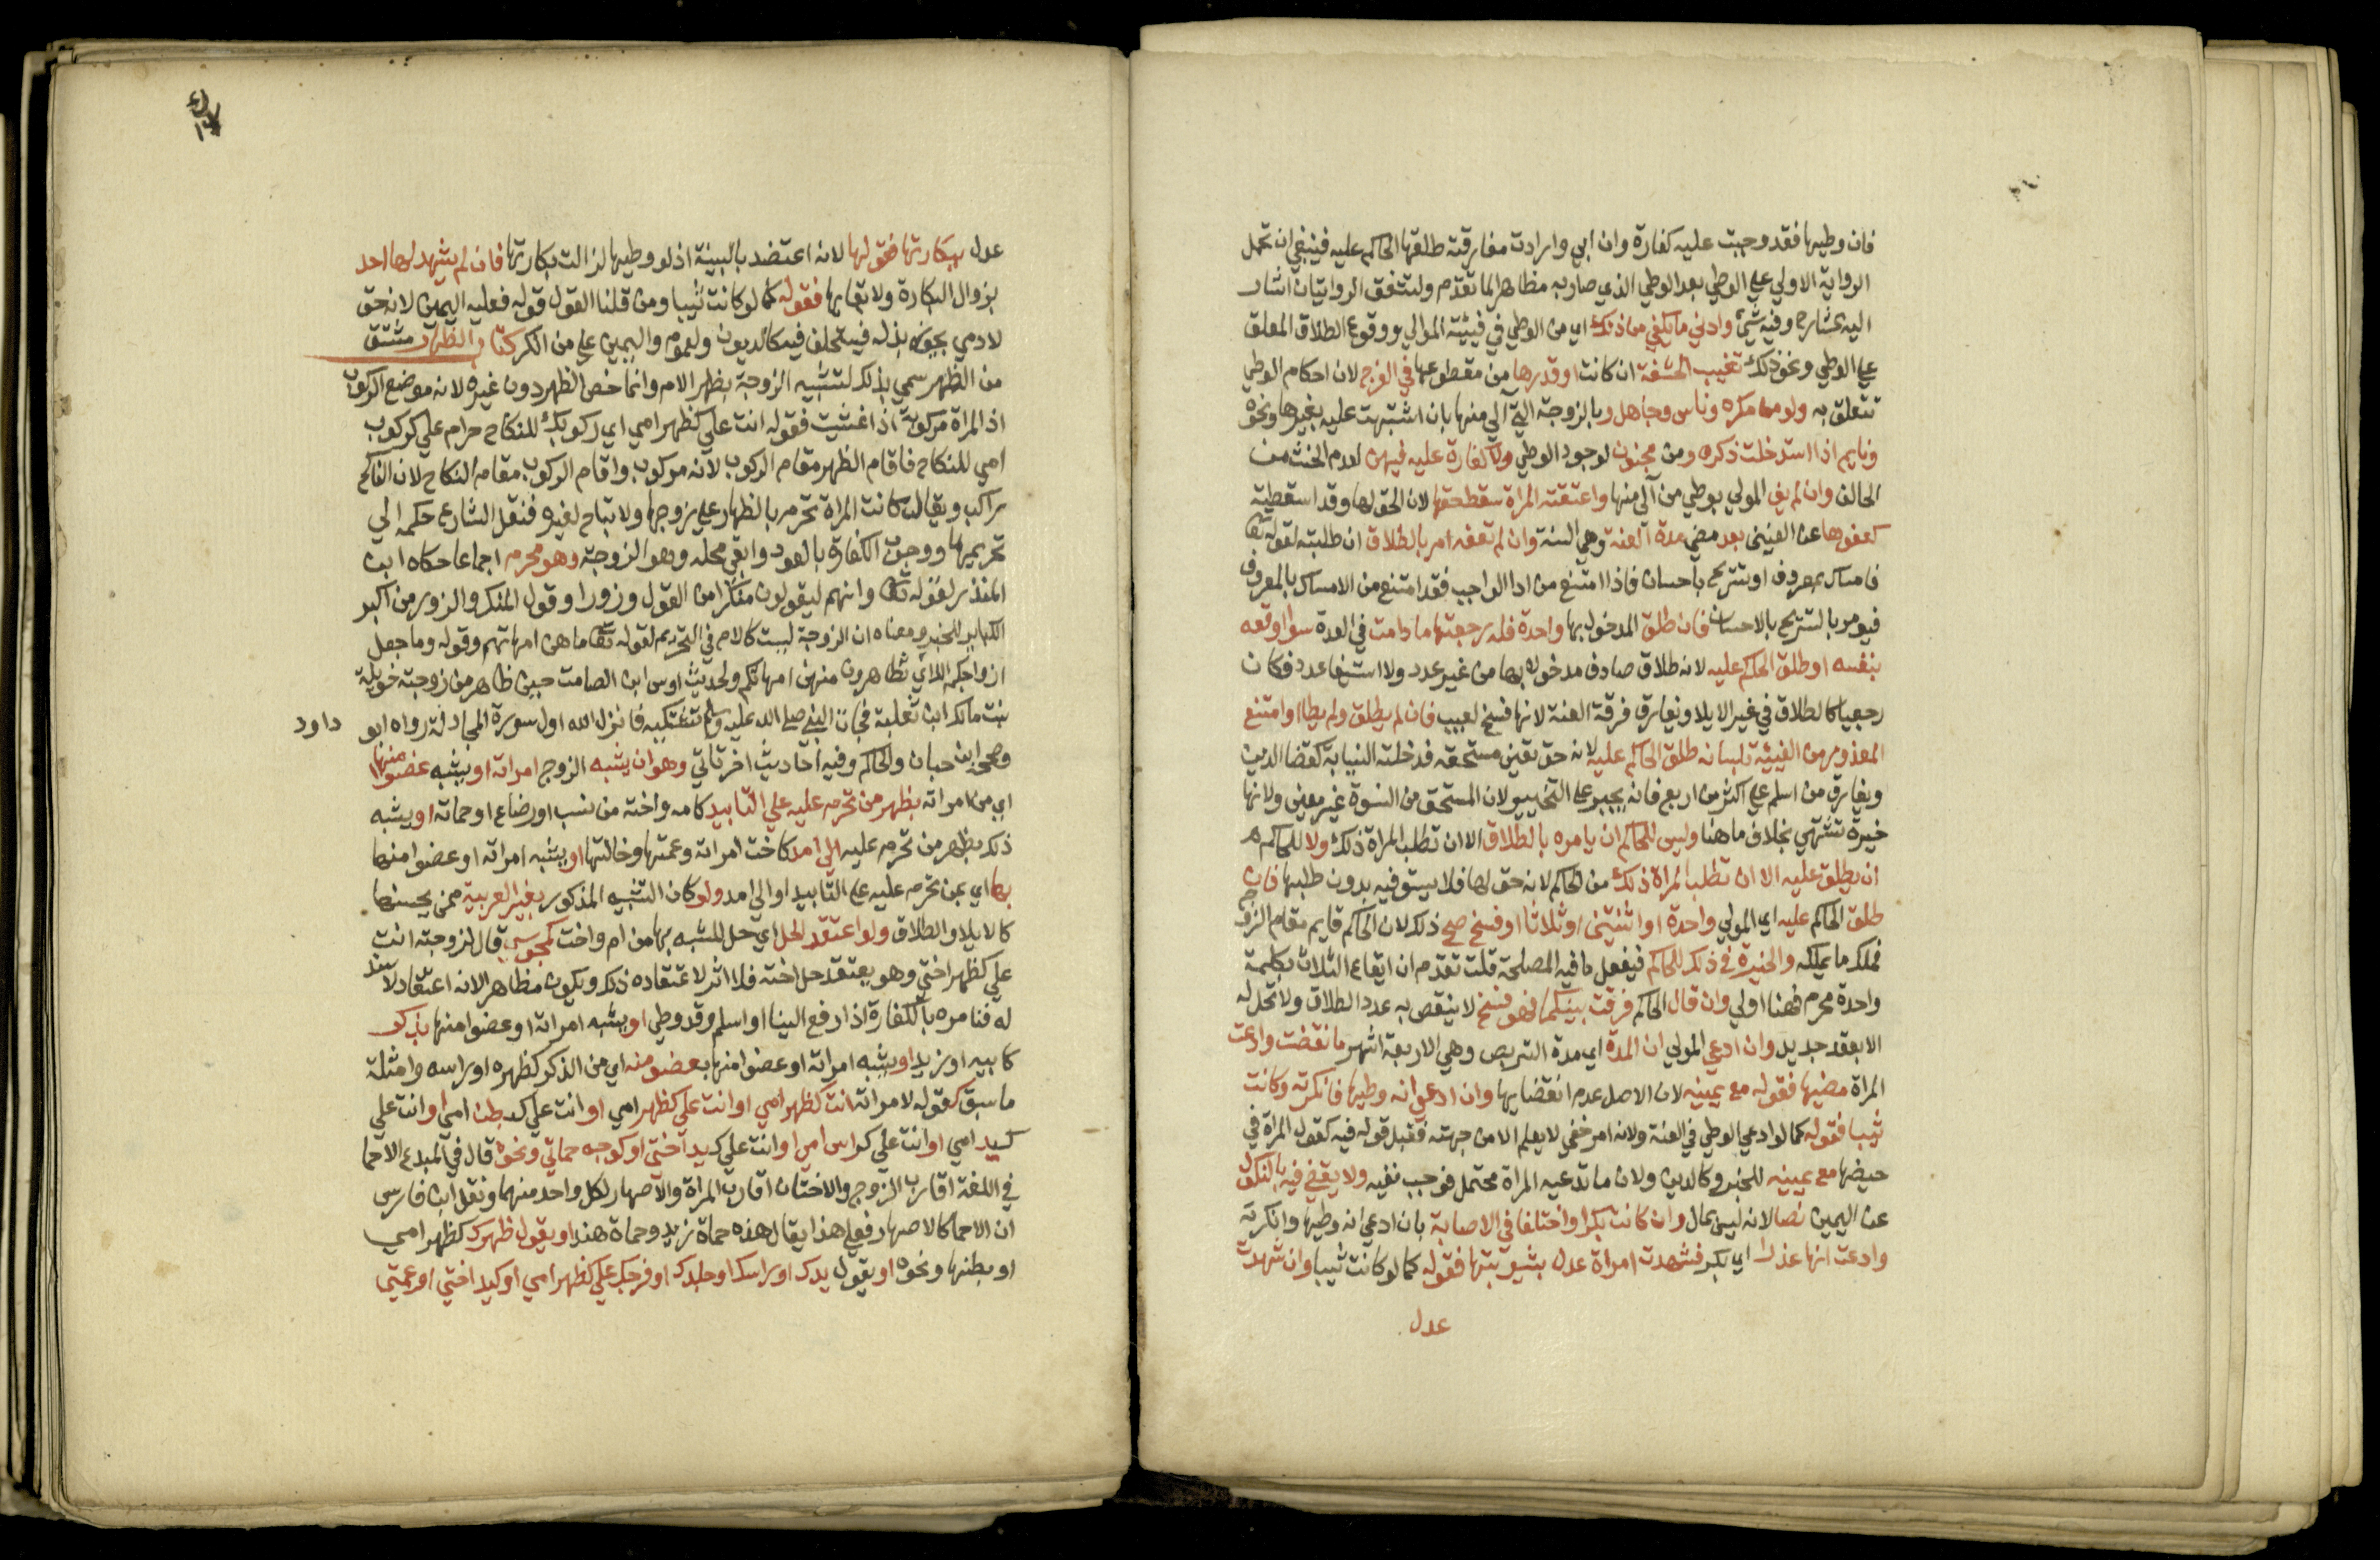 فان وطيها فقد وجبت عليه كفارة وان ابي وارادت مفارقته طلقها الحاكم عليه فينبغي ان تحمل
الرواية الاولي علي الوطي بعد الوطي الذي صار به مظاهرا لما تقدم ولتتفق الروايتان اشار
اليه الشارح وفيه شي وادني ما يكفي من ذلك اي من الوطي في فيئة المولي ووقوع الطلاق المعلق
علي الوطي ونحو ذلك تغييب الحشفة ان كانت او قدرها من مقطوعها في الفرج لان احكام الوطي
تتعلق به ولو من مكره وناس وجاهل وبالزوجة التي آلي منها بان اشتبهت عليه بغيرها ونحوه
ونايم اذا استدخلت ذكره ومن مجنون لوجود الوطي ولا كفارة عليه فيهن لعدم الحنث من
الحالف وان لم يف المولي بوطي من آلي منها واعتقته المراة سقط حقها لان الحق لها وقد اسقطته
كعفوها عن العنين بعد مضي مدة العنة وهي السنة وان لم تعفه امر بالطلاق ان طلبته لقوله تعا
فامساك بمعروف او تسريح باحسان فاذا امتنع من ادا الواجب فقد امتنع من الامساك بالمعروف
فيومر بالتسريح بالاحسان فان طلق المدخول بها واحدة فله رجعتها ما دامت في العدة سوا اوقعه
بنفسه او طلق الحاكم عليه لانه طلاق صادف مدخولا بها من غير عدد ولا استيفا عدد فكان
رجعيا كالطلاق في غير الايلا ويفارق فرقة العنة لانها فسخ لعيب فان لم يطلق ولم يطا او امتنع
المعذور من الفيئة بلسانه طلق الحاكم عليه لانه حق تعين مستحقه فدخلته النيابة كقضا الدين
ويفارق من اسلم علي اكثر من اربع فانه يجبر علي التخيير لان المستحق من النسوة غير معين ولانها
خيرة تشتهي بخلاف ما هنا وليس للحاكم ان يامره بالطلاق الا ان تطلب المراة ذلك ولا للحاكم
ان يطلق عليه الا ان تطلب المراة ذلك من الحاكم لانه حق لها فلا يستوفيه بدون طلبها فان
طلق الحاكم عليه اي المولي واحدة او اثنتين او ثلاثا او فسخ صح ذلك لان الحاكم قايم مقام الزوج
فملك ما يملكه والخيرة في ذلك للحاكم فيفعل ما فيه المصلحة قلت تقدم ان ايقاع الثلاث بكلمة
واحدة محرم فهنا اولي وان قال الحاكم فرقت بينكما فهو فسخ لا ينقص به عدد الطلاق ولا تحل له
الا بعقد جديد وان ادعي المولي ان المدة اي مدة التربص وهي الاربعة اشهر ما نقضت وادعت
المراة مضيها فقوله مع يمينه لان الاصل عدم انقضايها وان ادعي انه وطيها فانكرته وكانت
ثيبا فقوله كما لو ادعي الوطي في العنة ولانه امر خفي لا يعلم الا من جهته فقبل قوله فيه كقول المراة في
حيضها مع يمينه للخبر وكالدين ولان ما تدعيه المراة محتمل فوجب نفيه ولا يقضي فيه بالنكول
عن اليمين نصا لانه ليس بمال وان كانت بكرا واختلفا في الاصابة بان ادعي انه وطيها وانكرته
وادعت انها عذرا اي بكر فشهدت امراة عدل بثيوبتها فقوله كما لو كانت ثيبا وان شهدت
عدل
عدل ببكارتها فقولها لانه اعتضد بالبينة اذ لو وطيها لزالت بكارتها فان لم يشهد لها احد
بزوال البكارة ولا بقايها فقوله كما لو كانت ثيبا ومن قلنا القول قوله فعليه اليمين لانه حق
لادمي يجوز بذله فيستحلف فيه كالديون ولعموم واليمين علي من انكر كتاب الظهار مشتق
من الظهر سمي بذلك لتشبيه الزوجة بظهر الام وانما خص الظهر دون غيره لانه موضع الركوب
اذ المراة مركوبة اذا غشيت فقوله انت علي كظهر امي اي ركوبك للنكاح حرام علي كركوب
امي للنكاح فاقام الظهر مقام الركوب لانه مركوب واقام الركوب مقام النكاح لان الناكح
راكب ويقال كانت المراة تحرم بالظهار علي زوجها ولا تباح لغيره فنقل الشارع حكمه الي
تحريمها ووجوب الكفارة بالعود وابقي محله وهو الزوجة وهو محرم اجماعا حكاه ابن
المنذر لقوله تعا وانهم ليقولون منكرا من القول وزورا وقول المنكر والزور من اكبر
الكباير للخبر ومعناه ان الزوجة ليست كالام في التحريم لقوله تعا ما هن امهاتهم وقوله وما جعل
ازواجكم اللاي تظاهرون منهن امهاتكم ولحديث اوس ابن الصامت حين ظاهر من زوجته خويلة
بنت مالك ابن ثعلبة فجات النبي صلي الله عليه وسلم تشتكيه فانزل الله اول سورة المجادلة رواه ابو داود
وصححه ابن حبان والحاكم وفيه احاديث اخر تاتي وهو ان يشبه الزوج امراته او يشبه عضوا منها
اي من امراته بظهر من تحرم عليه علي التابيد كامه واخته من نسب او رضاع او حماته او يشبه
ذلك بظهر من تحرم عليه الي امد كاخت امراته وعمتها وخالتها او يشبه امراته او عضوا منها
بها اي بمن تحرم عليه علي التابيد او الي امد ولو كان التشبيه المذكور بغير العربية ممن يحسنها
كالايلا والطلاق ولو اعتقد الحل اي حل المشبه بها من ام واخت كمجوسي قال لزوجته انت
علي كظهر اختي وهو يعتقد حل اخته فلا اثر لاعتقاده ذلك ويكون مظاهرا لانه اعتقاد لا سند
له فنامره بالكفارة اذا رفع الينا او اسلم وقد وطي او يشبه امراته او عضوا منها بذكر
كابيه او زيد او يشبه امراته او عضوا منها بعضو منه اي من الذكر كظهره او راسه وامثلة
ما سبق كقوله لامراته انت كظهر امي او انت علي كظهر امي او انت علي كبطن امي او انت علي
كيد امي او انت علي كراس امي او انت علي كيد اختي او كوجه حماتي ونحوه قال في المبدع الاحما
في اللغة اقارب الزوج والاختان اقارب المراة والاصهار لكل واحد منهما ونقل ابن فارس
ان الاحما كالاصهار فعلي هذا يقال هذه حماة زيد وحماة هند او يقول ظهرك كظهر امي
او بطنها ونحوه او يقول يدك او راسك او جلدك او فرجك علي كظهر امي او كيد اختي او عمتي